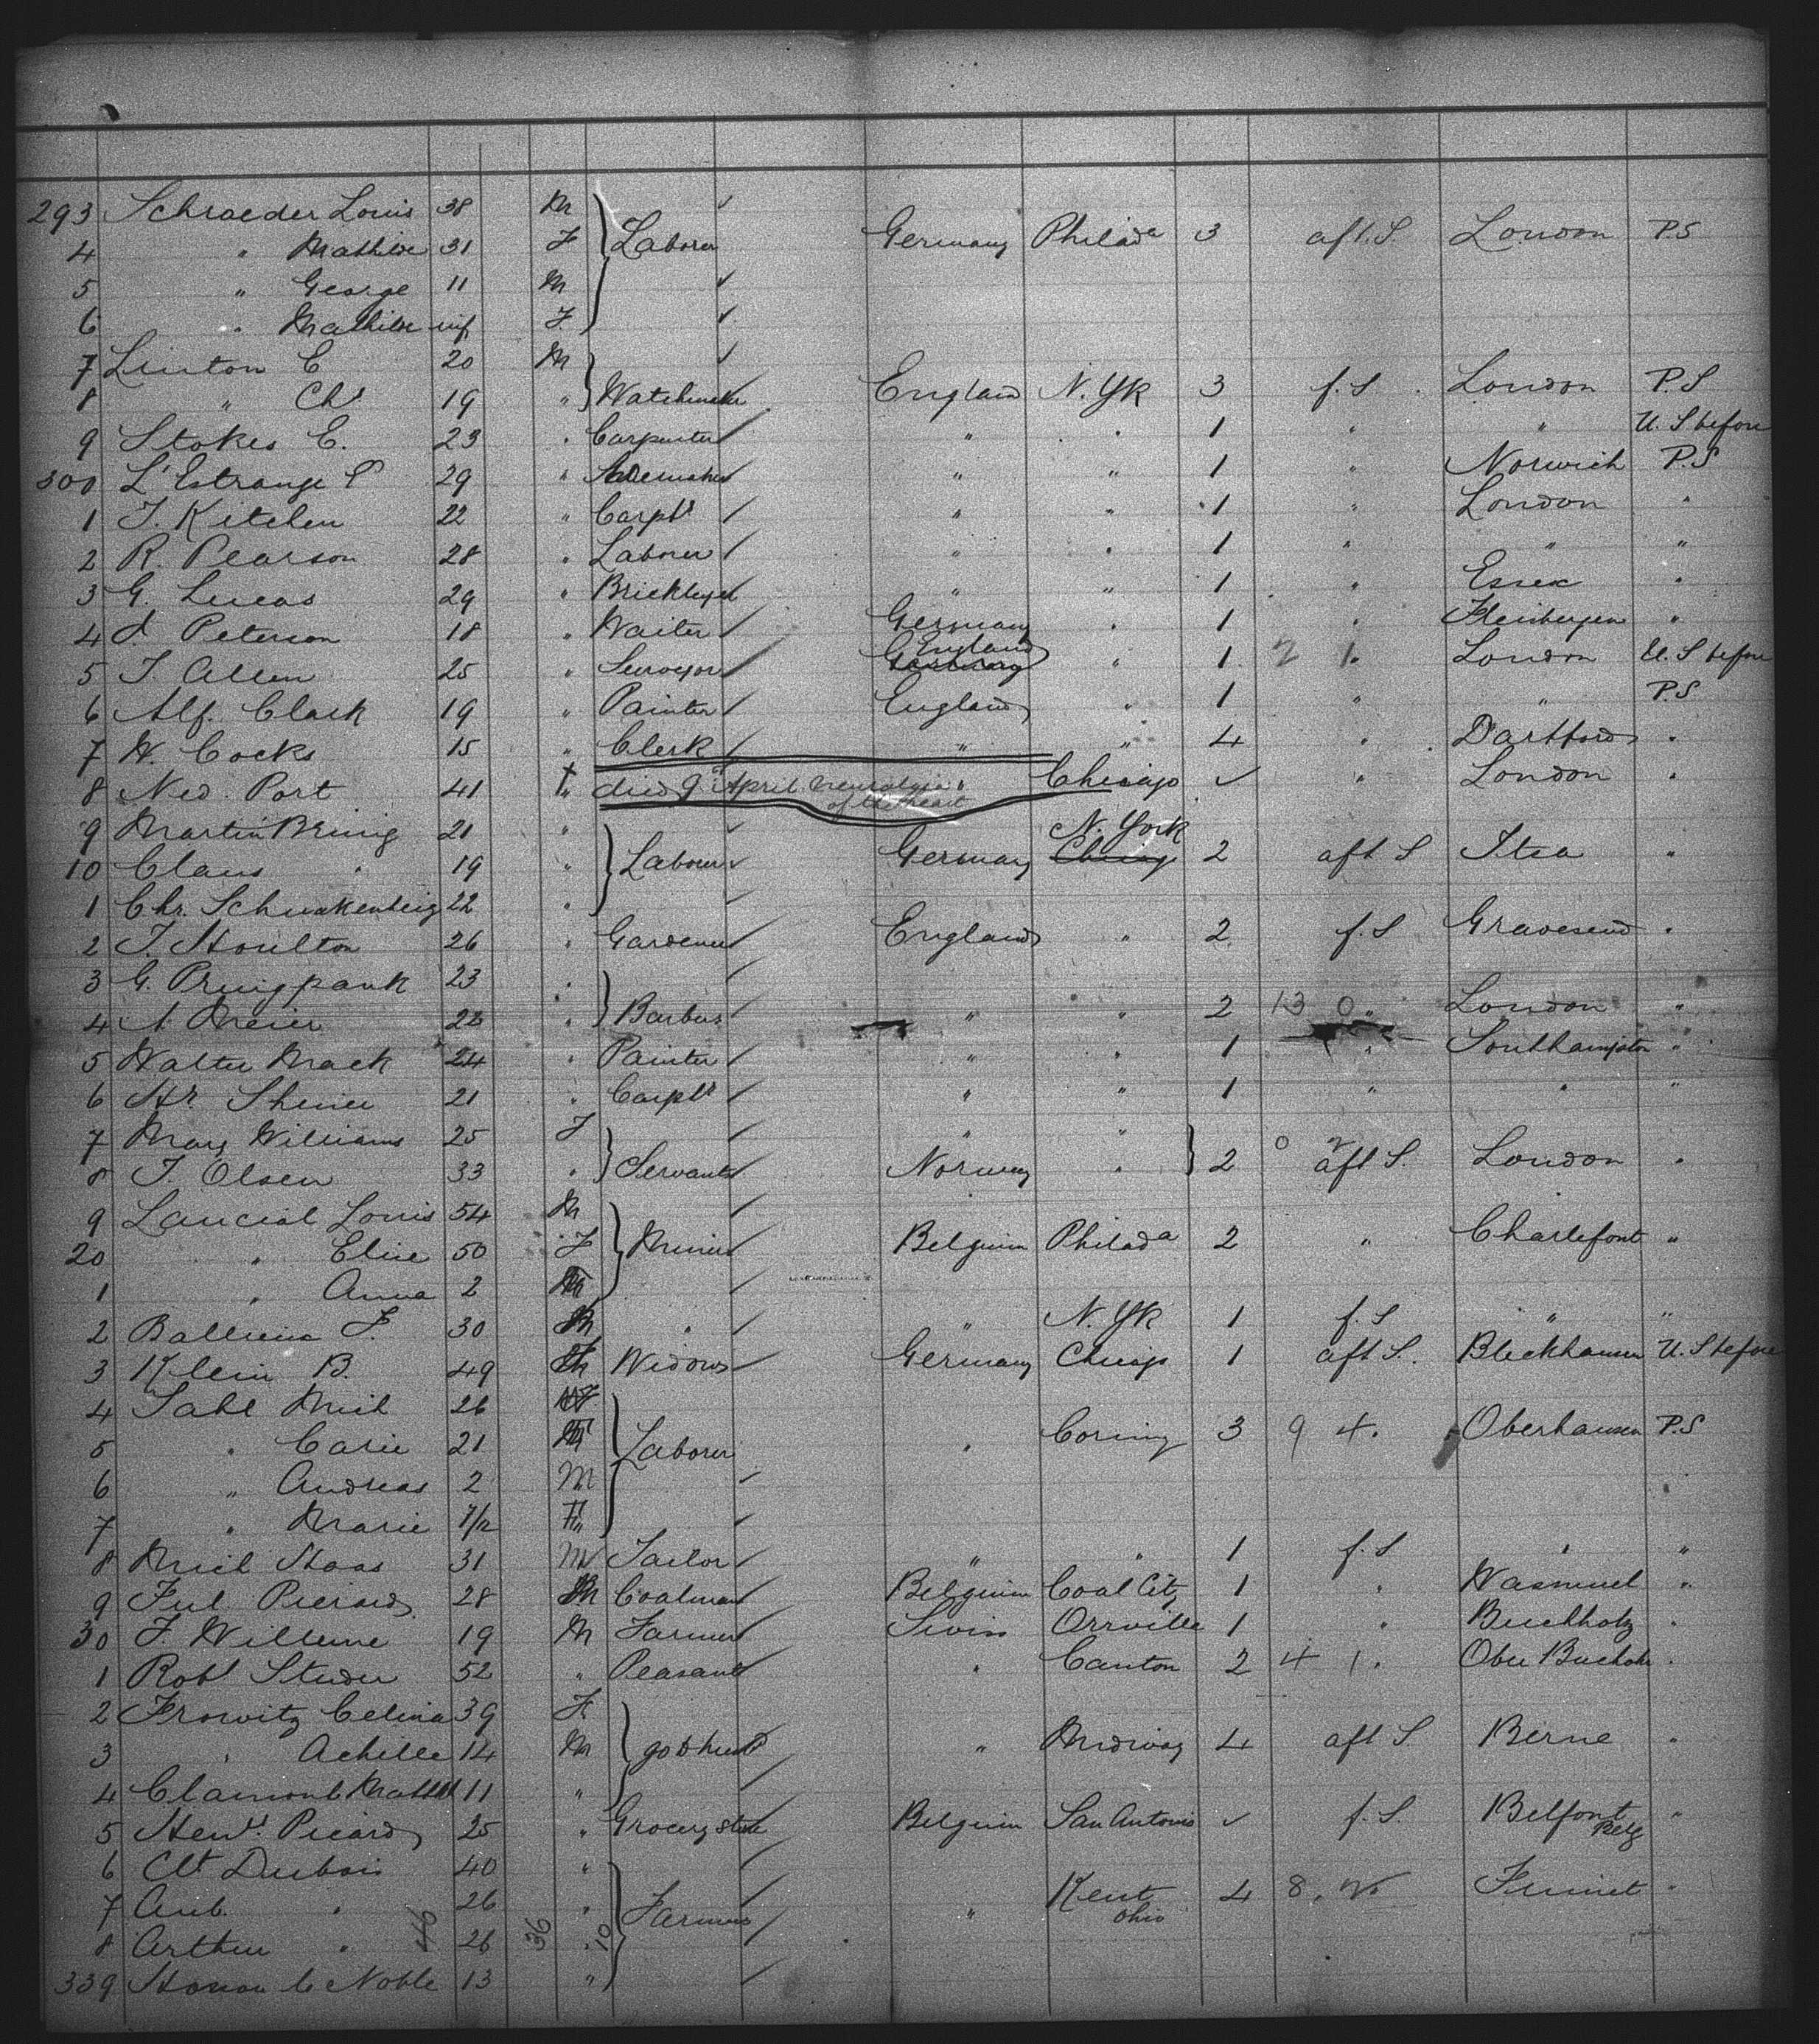 293 Schraeder Louis 38 M
4 " Mathilde 31 F Laborer Germany Philada 3 aft. S. London P.S
5 " George 11 M
6 " Mathilde inf F.
7 Linton C 20 M
8 " Chs 19 " Watchmaker England N. Yk 3 f. S. London P.S
9 Stokes E. 23 " Carpenter " " 1 " " U. S before
300 L'Estrange 29 " " " 1 " Norwich P.S
1 J. Kitchen 22 " Carpt " " 1 " London "
2 R. Pearson 28 " Laborer " " 1 " " "
3 G. Lucas 29 " Bricklayer " " 1 " Essex "
4 Peterson 18 " Waiter Germany " 1 " "
5 J. Allen 25 " Surveyor England " 1 2 1 " London U. S before
6 Alf. Clark 19 " Painter England " 1 " " P.S
7 W. Cocks 15 " Clerk " " 4 " Dartford "
8 Ned. Port 41 " died 9 April Neuralgia of the heart Chicago " London "
9 Martin Brinig 21 " N. York
10 Claus " 19 " Laborers Germany Chicago 2 aft S Itea "
1 Chr. Schnakenbeig 22 "
2 J. Houlton 26 " Gardener England " 2 f. S Gravesend "
3 G. Pruigpank 23 "
4 A. Meier 22 " Barbers " " 2 13 0 " London "
5 Walter Mack 24 " Painter " " 1 " Southampton "
6 Hy. 21 " Carpt " " 1 " " "
7 Mary Williams 25 F " "
8 J. Olsen 33 " Servants Norway " 2 0 2 aft S. London "
9 Lancial Louis 54 M
20 " Elise 50 F Miner Belgium Philada 2 " Charlefont "
1 " Anna 2
2 F. 30 M " " N. Yk 1 f. S " "
3 Klein B. 49 Widow Germany Chicago 1 aft S. U. S before
4 Sahl Mich 26
5 " Carie 21 Laborer " Corning 3 9 4 " Oberhausen P.S
6 " Andreas 2 M
7 " Marie F
8 Mich Haas 31 M Tailor " " 1 f. S " "
9 Jul. Pierard 28 M Coalman Belgium Coal City 1 " Wasmuel "
30 F. Willeme 19 M Farmer Swiss Orrville 1 " Buchholz "
1 Robt Studer 52 " Peasant " Canton 2 4 1 " "
2 Frowitz Celina 39 F
3 " Achille 14 M go to husb " Midway 4 aft S Berne "
4 Clamont 11 "
5 Picard 25 " Grocery store Belgium San Antonio f. S. Belfont Belg "
6 Ct Dubois 40 "
7 Aub. " 26 " Farmers " Kent Ohio 4 8 2 "
8 Arthur " 26 "
339 Noble 13 "
46 36 10